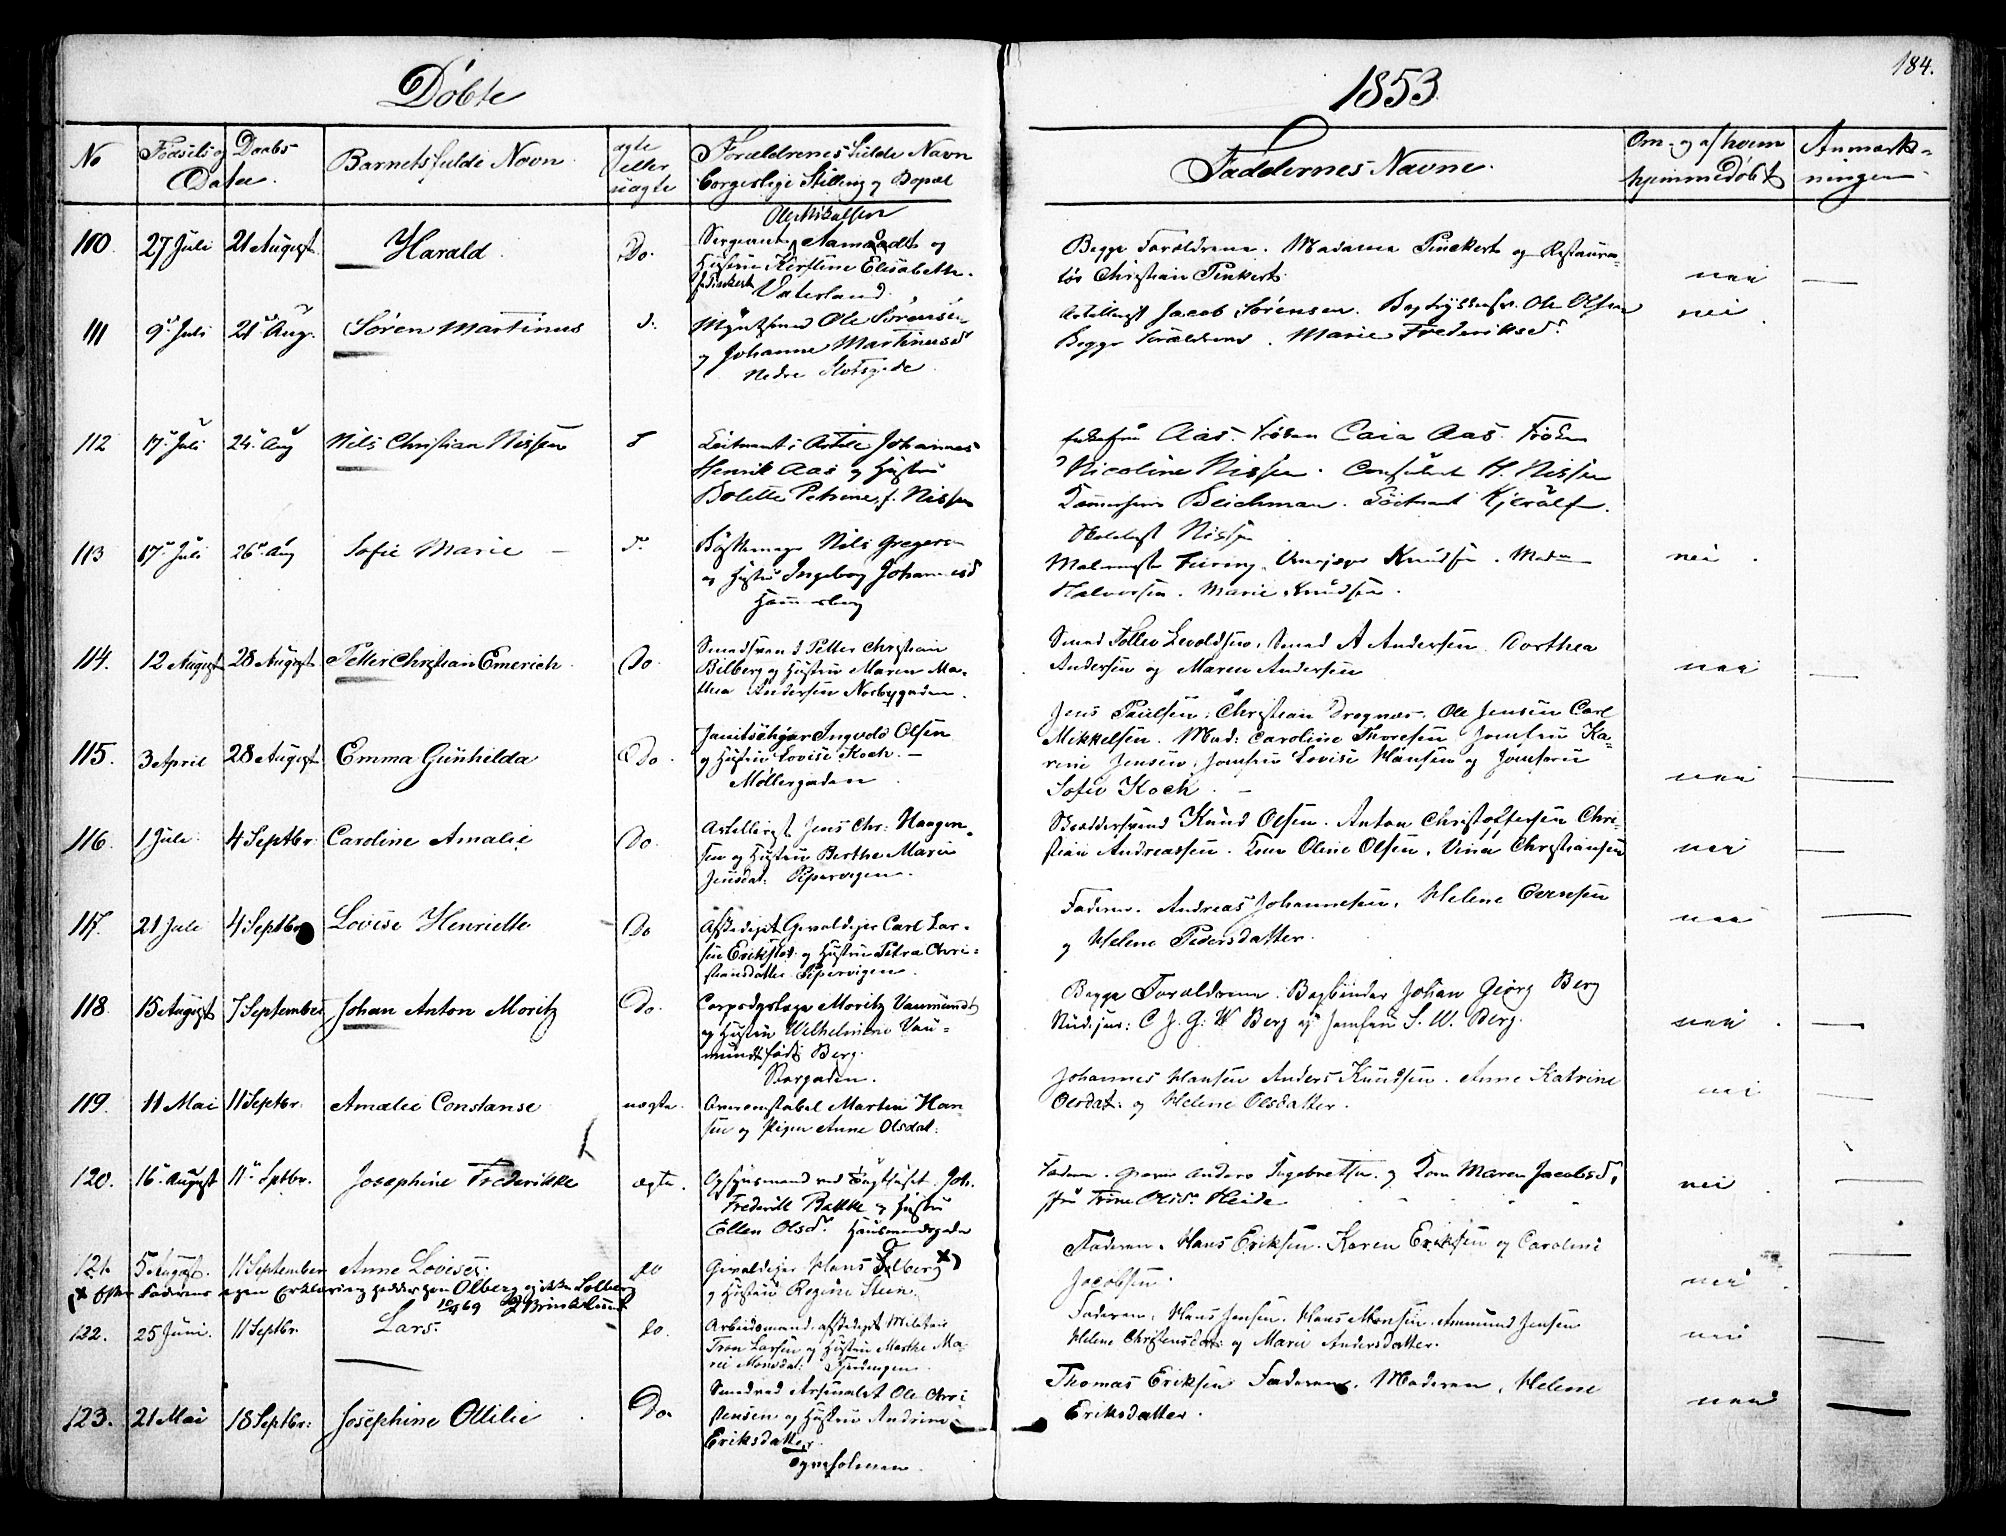 Døbte
1853
184.
No
Fødsels og Daabs
Datum.
Barnets fulde Navn.
ægte
eller
uægte
Forældrenes fulde Navn
borgerlige Stilling og Bopæl
Faddernes Navne.
Om og af hvem
hjemmedøbt
Anmærk-
ninger
110. 27 Juli 21 August Harald Do.
Sergeant og
Hustru Kirstine Elisabeth
Vaterland.
Begge Forældrene. Madame Pinckert og Restaura-
tør Christian Pinkert.
nei
111 9de Juli 21 Aug. Søren Martinus d:
Myntsvend Ole Sørensen
og Johanne Martinusd
Nedre Slotsgade
Artillerist Jacob Sørensen. Ole Olsen
Begge Forældrene. Marie Frederiksd.
nei
112 17 Juli 24 Aug Nils Christian Nissen d
Løitnant i Artill Johannes
Henrik Aas og Hustru
Bolette Petrine f. Nissen
Aas. Frøken Caia Aas. Frøken
Nicoline Nissen. Consulent H. Nissen
Beichman. Løitnant Kjerulf.
Nissen
113 17 Juli 26 Aug Sofie Marie d.
Nils Gregersen
og Hustru Ingeborg Johannesd
Hammersborg
Knudsen. Madm
Halvorsen. Marie Knudsen.
nei
114. 12 August 28 August Petter Christian Emerich Do
Smedsvend Petter Christian
Bilberg og Hustru Maren Ma-
thea Andersen Norbygaden.
Smed Andersen. Dorthea
Andersen og Maren Andersen
nei
115. 3 April 28 August Emma Gunhilda Do.
Janitschar Ingvald Olsen
og Hustru Lovise Koch.
Møllergaden
Jens Paulsen. Christian Dragnæs. Ole Jensen Carl
Mikkelsen. Mad: Caroline Thoresen Jomfru Ka-
rine Jensen, Jomfru Lovise Hansen og Jomfru
Sofie Koch.
nei
116. 1 Juli. 4 Septbr. Caroline Amalie Do.
Artillerist Jens Chr: Haagen-
sen og Hustru Berthe Marie
Jensdat: Pipervigen.
Knud Olsen. Anton Christoffersen Chri-
stian Andreassen. Kone Oline Olsen. Christiansen
nei
117. 21 Juli 4 Septbr Lovise Henriette Do
Afskediget Gevaldiger Carl Lar-
sen og Hustru Petra Chri-
stiansdatter Pipervigen.
Faderen. Andreas Johannesen, Helene Evensen
og Helene Pedersdatter.
nei
118. 15 August 7 September Johan Anton Moritz Do.
Moritz Vaumundt
og Hustru Wilhelmine Vau-
mundt født Berg.
Storgaden.
Begge Forældrene. Bogbinder Johan Georg Berg
Stud. jur: C J. G: W Berg og Jomfru S. W. Berg.
nei
119. 11 Mai 11 Septbr. Amalie Constanse uægte.
Martin Han-
sen og Pigen Anne Olsdat:
Johannes Hansen Anders Knudsen. Anne Katrine
Olsdat: og Helene Olsdatter.
nei
120. 16 August 11 Septbr. Josephine Frederikke ægte.
Opsynsmand ved Tugthuset Joh.
Frederik Bakke og Hustru
Ellen Olsd. Hausmandsgade
Faderen. Anders Ingebretsen og Kone Maren Jacobsd,
Fru Trine Olsd. Heide
nei
121. 5 August. 11 September Anne Lovise. do
Gevaldiger Hans Solberg x)
og Hustru Regine Steen.
Faderen. Hans Eriksen. Karen Eriksen og Caroline
Jacobsen.
nei
(x Efter Faderens egen Erklæring hedder han Olberg og ikke Solberg
122. 25 Juni. 11 Septbr. Lars. do.
Arbeidsmand, afskediget Militair
Tron Larsen og Hustru Marthe Ma-
rie Monsdat:
Faderen, Hans Jensen. Hans Monsen. Ammund Jensen
Helene Christensdat: og Marie Andersdatter.
nei
123. 21 Mai 18 Septbr: Josephine Ottilie Do.
Smed ved Arsenalet Ole Chri
stensen og Hustru Andrine
Eriksdatter.
Tyveholmen.
Thomas Eriksen Faderen, Moderen, Helene
Eriksdatter.
nei